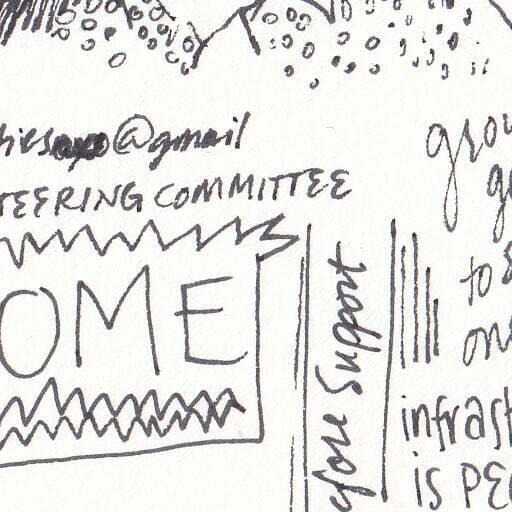 @gmail
TEERING COMMITTEE
OME
efore Support
grou
to
on
infrast
is PE